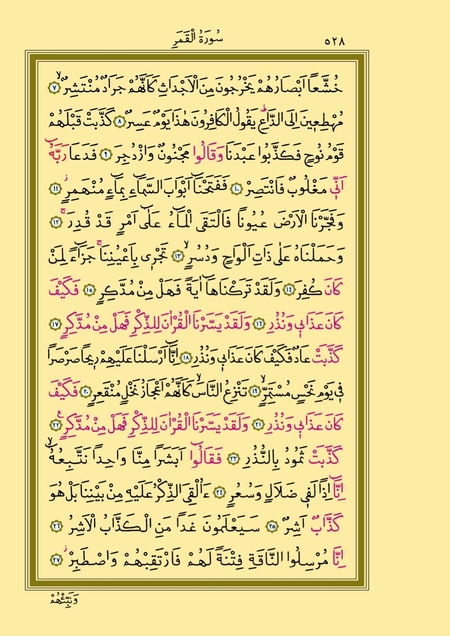 ٥٢٨ سُورَةُ الْقَمَرِ
خُشَّعاً اَبْصَارُهُمْ يَخْرُجُونَ مِنَ الْاَجْدَاثِ كَاَنَّهُمْ جَرَادٌ مُنْتَشِرٌۙ ﴿٧﴾
مُهْطِعٖينَ اِلَى الدَّاعِۜ يَقُولُ الْكَافِرُونَ هٰذَا يَوْمٌ عَسِرٌ ﴿٨﴾ كَذَّبَتْ قَبْلَهُمْ
قَوْمُ نُوحٍ فَكَذَّبُوا عَبْدَنَا وَقَالُوا مَجْنُونٌ وَازْدُجِرَ ﴿٩﴾ فَدَعَا رَبَّهُٓ
اَنّٖي مَغْلُوبٌ فَانْتَصِرْ ﴿١٠﴾ فَفَتَحْنَٓا اَبْوَابَ السَّمَٓاءِ بِمَٓاءٍ مُنْهَمِرٍۘ ﴿١١﴾
وَفَجَّرْنَا الْاَرْضَ عُيُوناً فَالْتَقَى الْمَٓاءُ عَلٰٓى اَمْرٍ قَدْ قُدِرَۚ ﴿١٢﴾
وَحَمَلْنَاهُ عَلٰى ذَاتِ اَلْوَاحٍ وَدُسُرٍۙ ﴿١٣﴾ تَجْرٖي بِاَعْيُنِنَاۚ جَزَٓاءً لِمَنْ
كَانَ كُفِرَ ﴿١٤﴾ وَلَقَدْ تَرَكْنَاهَٓا اٰيَةً فَهَلْ مِنْ مُدَّكِرٍ ﴿١٥﴾ فَكَيْفَ
كَانَ عَذَابٖي وَنُذُرِ ﴿١٦﴾ وَلَقَدْ يَسَّرْنَا الْقُرْاٰنَ لِلذِّكْرِ فَهَلْ مِنْ مُدَّكِرٍ ﴿١٧﴾
كَذَّبَتْ عَادٌ فَكَيْفَ كَانَ عَذَابٖي وَنُذُرِ ﴿١٨﴾ اِنَّٓا اَرْسَلْنَا عَلَيْهِمْ رٖيحاً صَرْصَراً
فٖي يَوْمِ نَحْسٍ مُسْتَمِرٍّۙ ﴿١٩﴾ تَنْزِعُ النَّاسَۙ كَاَنَّهُمْ اَعْجَازُ نَخْلٍ مُنْقَعِرٍ ﴿٢٠﴾ فَكَيْفَ
كَانَ عَذَابٖي وَنُذُرِ ﴿٢١﴾ وَلَقَدْ يَسَّرْنَا الْقُرْاٰنَ لِلذِّكْرِ فَهَلْ مِنْ مُدَّكِرٍ۟ ﴿٢٢﴾
كَذَّبَتْ ثَمُودُ بِالنُّذُرِ ﴿٢٣﴾ فَقَالُٓوا اَبَشَراً مِنَّا وَاحِداً نَتَّبِعُهُٓۙ
اِنَّٓا اِذاً لَفٖي ضَلَالٍ وَسُعُرٍ ﴿٢٤﴾ ءَاُلْقِيَ الذِّكْرُ عَلَيْهِ مِنْ بَيْنِنَا بَلْ هُوَ
كَذَّابٌ اَشِرٌ ﴿٢٥﴾ سَيَعْلَمُونَ غَداً مَنِ الْكَذَّابُ الْاَشِرُ ﴿٢٦﴾
اِنَّا مُرْسِلُوا النَّاقَةِ فِتْنَةً لَهُمْ فَارْتَقِبْهُمْ وَاصْطَبِرْۘ ﴿٢٧﴾
وَنَبِّئْهُمْ